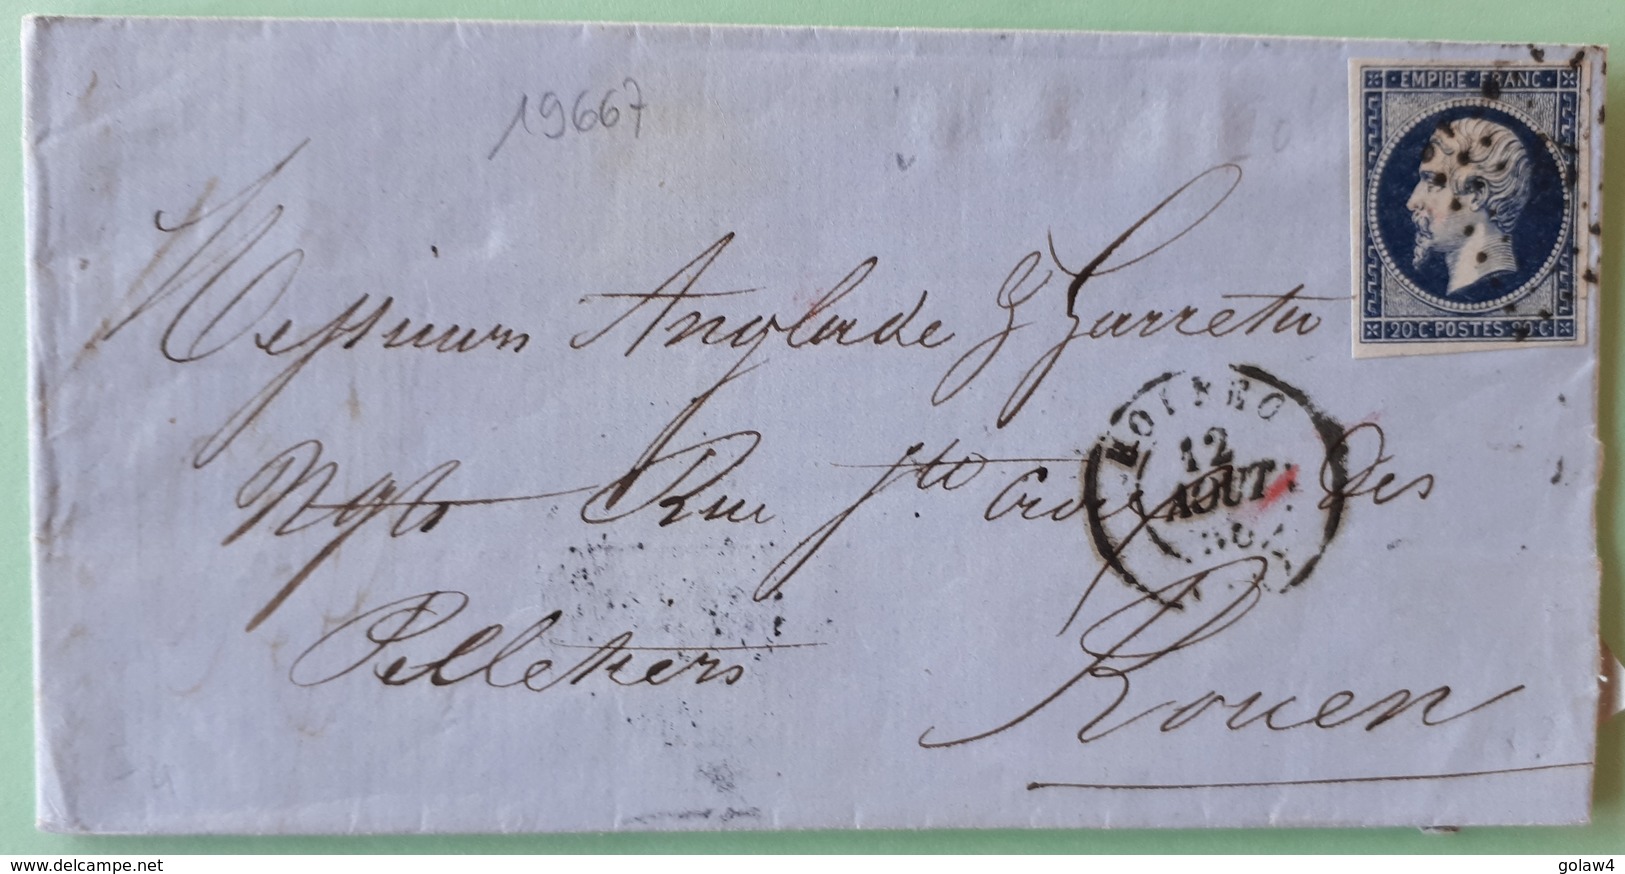 19667
EMPIRE · FRANC ·
20 C · POSTES · 20 C ·
Messieurs Anglade & Garreta
12
AOUT
Ngts Rue Ste Croix des
Pelletiers
Rouen
www.delcampe.net
golaw4